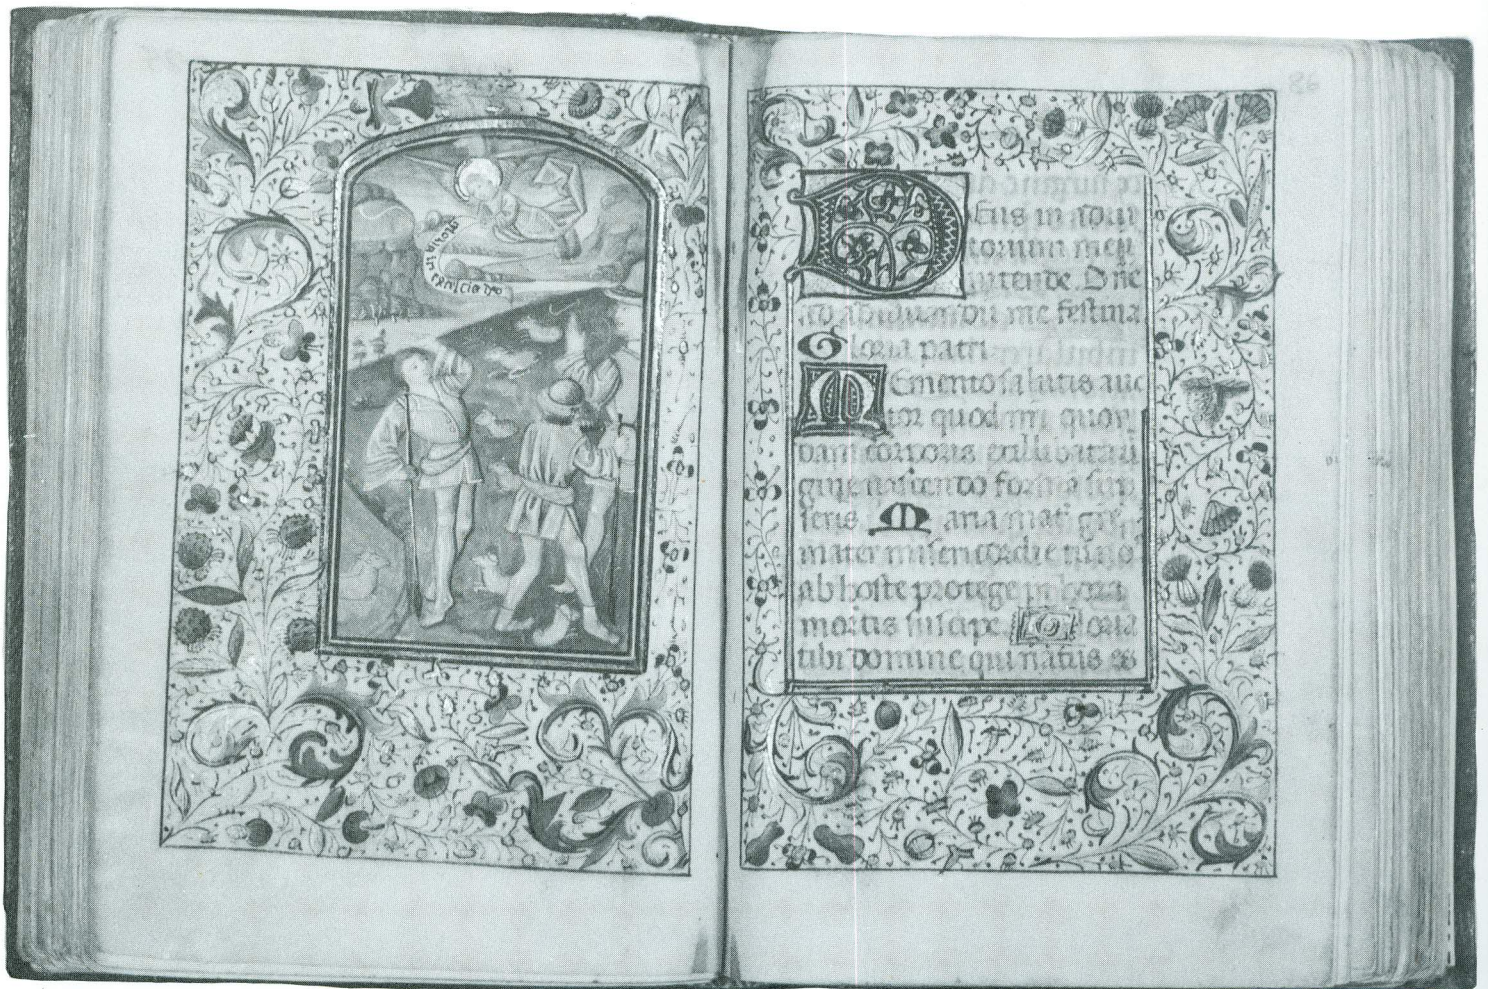 gloria in
excelcis deo
Deus in adiu
torium meū
intende. Dñe
ad adiuuandū me festina
Gloria patri
Memento salutis auc
tor quod nr̄i quon
dam corporis ex illibata ui
gine nascendo formā sup
seris Maria mat̄ gr̄e
mater misericordie tu nos
ab hoste protege in hora
mortis suscipe Gloria
tibi domine qui natus es